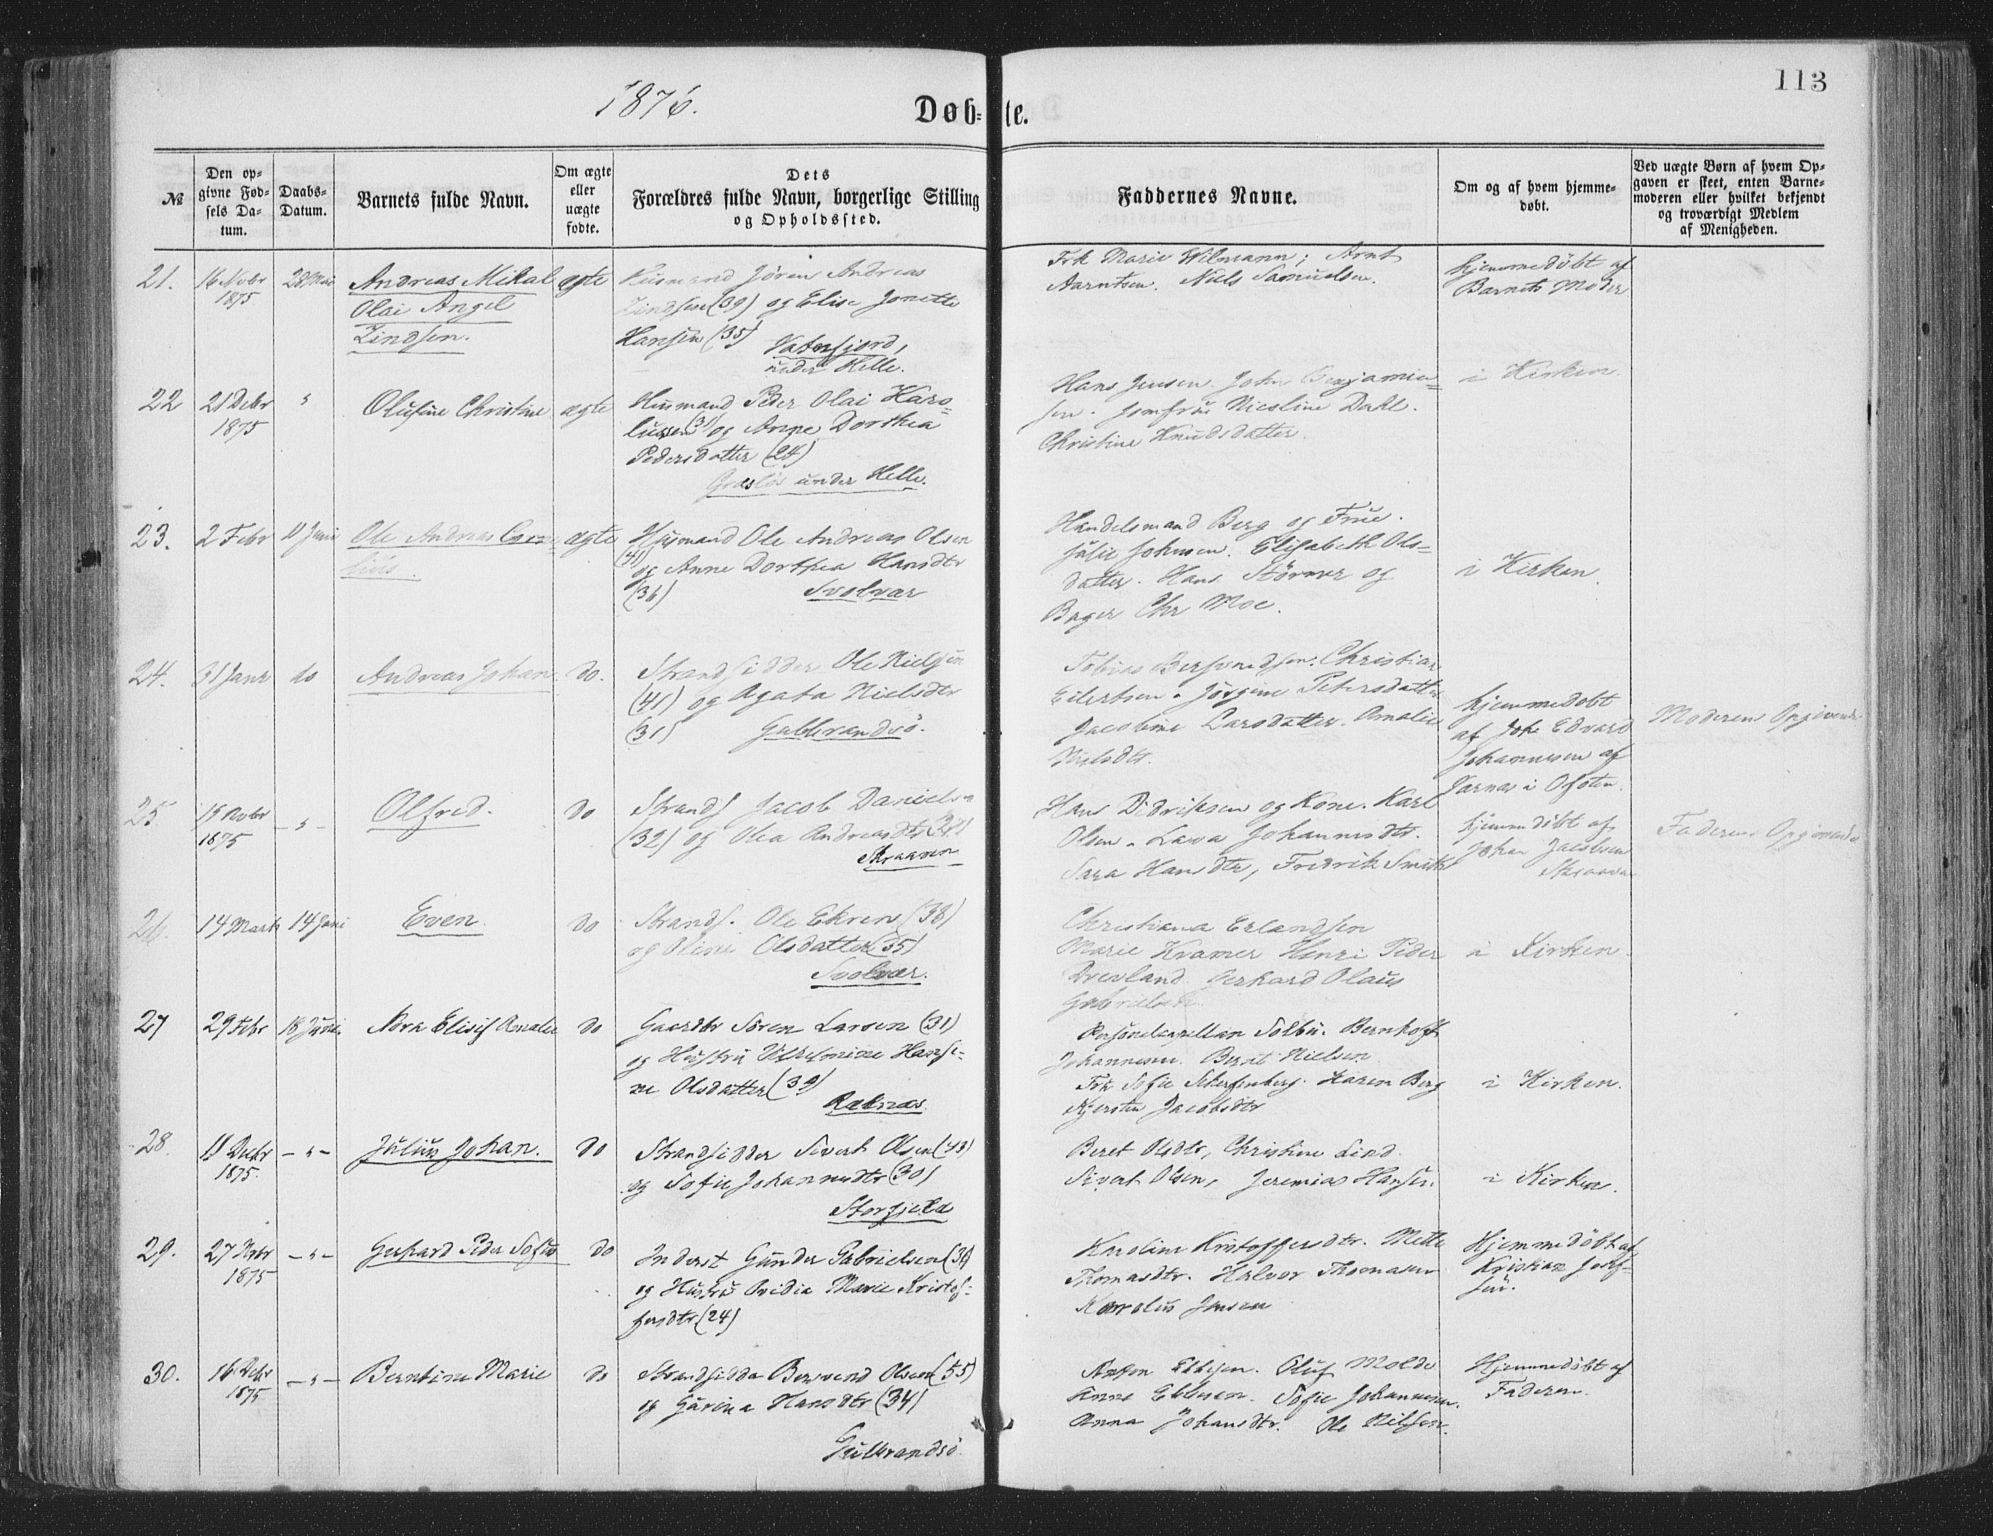 113
1876.
Døb-te.
№
Den op-
givne Fød-
sels Da-
tum.
Daabs-
Datum.
Barnets fulde Navn.
Om ægte
eller
uægte
fødte.
Dets
Forældres fulde Navn, borgerlige Stilling
og Opholdssted.
Faddernes Navne.
Om og af hvem hjemme-
døbt.
Ved uægte Børn af hvem Op-
gaven er skeet, enten Barne-
moderen eller hvilket bekjendt
og troværdigt Medlem
af Menigheden.
21.
16 Novbr
1875
28 Mai
Andreas Mikal
Olai Angel
Zindsen.
ægte
Husmand Jören Andreas
Zindsen (39) og Elise Jonette
Hansen (35)
Vatnfjord,
under Helle.
Frk Marie Wilmann; Arnt
Aarntsen. Niels Samuelsen.
Hjemmedöbt af
Barnets Moder
22
21 Debr
1875
Olufine Christine
ægte
Husmand Peder Olai Karo-
lussen (31) og Anne Dorthea
Pedersdatter (24)
under Helle.
Hans Jensen. John Benjamin-
sen. Jomfrue Nicoline Dahl.
Christine Knudsdatter.
i Kirken.
23.
2 Febr
11 Juni
Ole Andreas Cor-
ægte
Husmand Ole Andreas Olsen
(41)
og Anne Dorthea Hansdtr
(36)
Svolvær
Handelsmand Berg og Frue.
Julie Johnsen. Elisabeth Ols-
datter. Hans Störmer og
Bager Chr Moe.
i Kirken.
24.
31 Janr
do
Andreas Johan
do.
Strandsidder Ole Nielsen
(41) og Agata Nielsdtr
(31)
Gulbrandsö.
Tobias Berntsen. Christian
Eilertsen. Jörgine Petersdatter
Jacobine Larsdatter. Amalie
Nielsdtr.
hjemmedöbt
af Johs Edvard
Johannesen af
i Ofoten.
Moderens Opgivende
25.
15 Novbr
1875
Olfred.
do
Strands Jacob Daniels-
(32) og Olea Andreasdtr
Skraaven
Hans Didriksen og Kone. Karl
Olsen. Lava Johannesdtr.
Sara Hansdtr, Fredrik Smith
hjemmedöbt af
Johan Jacobsen
Skraaven
Faderens Opgivende
26.
14 Marts
14 Juni
Even.
do
Strands. Ole Ekren (38)
og Oline Olsdatter (35)
Svolvær.
Christiana Erlandsen
Marie Kramer Henri Peder
Drevland Gerhard Olaus
Gabrielsen
i Kirken.
27
29 Febr
18 Juni
Nora Elisif Amalie
do
Gaardbr Sören Larsen (31)
og Hustru Vilhelmine Hansi-
ne Olsdatter (39)
Personelcapellan Solbu. Bernhoft
Johannesen. Bernt Nielsen
Frk Sofie Scherfenberg. Karen Berg
Kjersten Jacobsdtr
i Kirken.
28.
11 Decbr
1875.
Julius Johan.
do
Strandsidder Sivert Olsen (43)
og Sofie Johannesdtr (30)
Storfjeld
Beret Olsdtr, Christine Lind.
Sivert Olsen, Jeremias Hansen.
i Kirken.
29.
27 Novbr
1875
Gerhard Peder Sofus
do
Inderst Gunder Gabrielsen
og Hustru Ovidia Marie Kristof-
fersdtr (24)
Karoline Kristoffersdtr. Mette
Thomasdtr. Halvor Thomasen
Karolus Jensen
Hjemmedöbt af
Kristian Josef-
sen.
30.
16 Debr
1875
Berntine Marie
do
Strandsidder Berend Olsen (35)
og Gurina Hansdtr (34)
Gulbrandsö
Anton Ebbesen. Oluf Molde
Anne Ebbesen. Sofie Johannesen.
Anna Johansdtr. Ole Nilsen.
Hjemmedöbt af
Faderen.